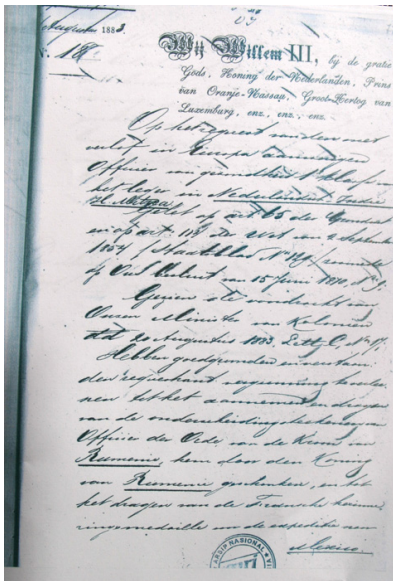 Augustus 1883.
N. 18.
Wij Willem III, bij de gratie
Gods, Koning der Nederlanden, Prins
van Oranje-Nassau, Groot-Hertog van
Luxemburg, enz., enz., enz.
Op het request van den met
verlof in Europa aanwezigen
Officier van gezondheid
het leger in Nederlandsch-Indie
Gelet op art 65 der Grondwet
en op art. 118 der Wet van 2 September
1854 (Staatsblad No 129)
Ons Besluit van 15 Juni No
Gezien de voordracht van
Onzen Minister van Kolonien
dd 20 Augustus 1883, Litt C, No
Hebben goedgevonden en verstaan:
den requestrant vergunning te verlee-
nen tot het aannemen en dragen
van de onderscheidingsteekenen van
Officier der Orde van de Kroon van
Rumenie, hem door den Koning
van Rumenie geschonken, en tot
het dragen van de Fransche herinne-
ringsmedaille van de expeditie naar
Mexico.
ARSIP NASIONAL